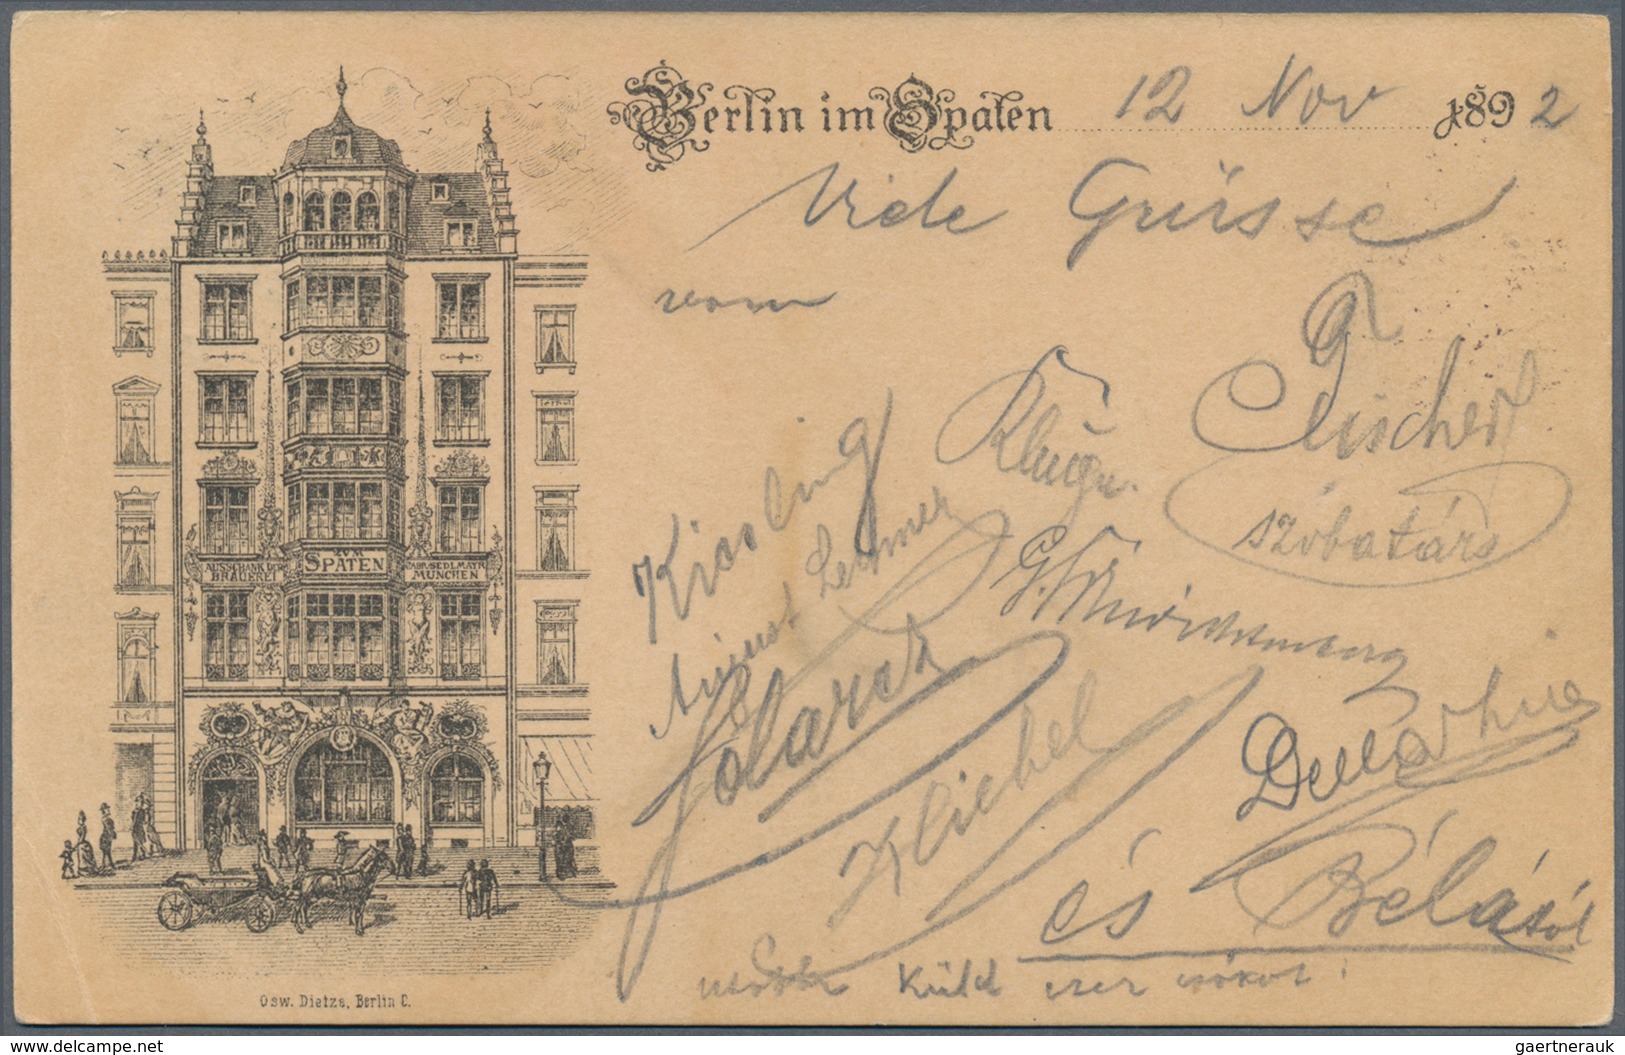 Berlin im Spaten 12 Nov 1892
Viele Grüsse
vom
Fischer
szobatárs
Kissling
Kluge
August Lehmer
Kliebel
és Bélától
Küld ezer csókot!
ZUM
SPATEN
AUSSCHANK DER
BRAUEREI
GABR. SEDLMAYR
MÜNCHEN
Osw. Dietze, Berlin C.
www.delcampe.net
gaertnerauk